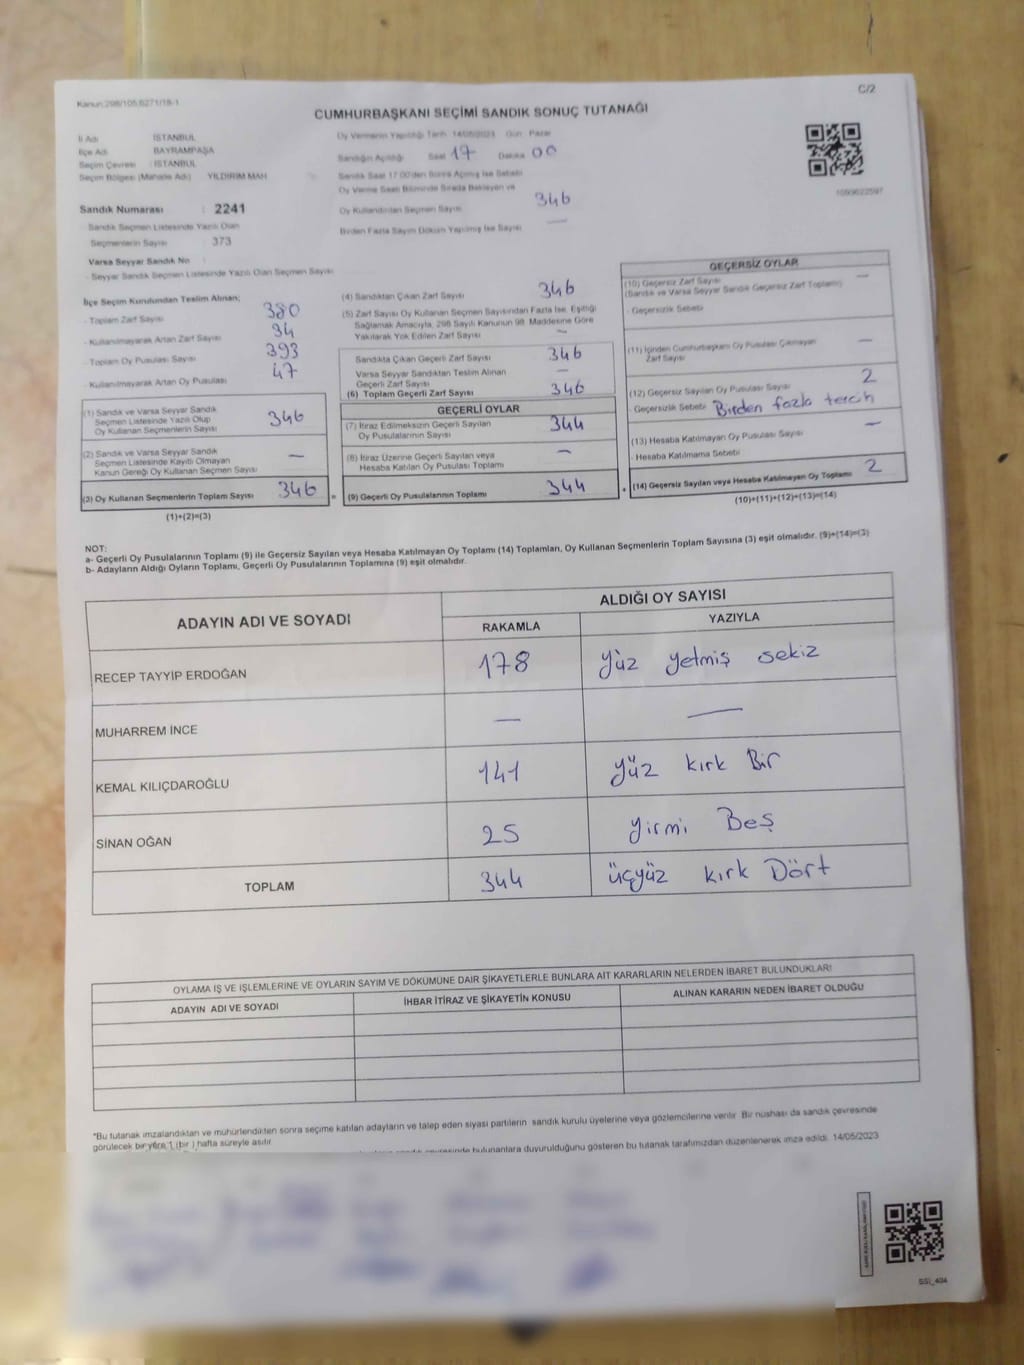 Kanun:298/105,6271/18-1
C/2
CUMHURBAŞKANI SEÇİMİ SANDIK SONUÇ TUTANAĞI
İl Adı : İSTANBUL
İlçe Adı : BAYRAMPAŞA
Seçim Çevresi : İSTANBUL
Seçim Bölgesi (Mahalle Adı) YILDIRIM MAH
Sandık Numarası : 2241
Sandık Seçmen Listesinde Yazılı Olan
Seçmenlerin Sayısı : 373
Varsa Seyyar Sandık No :
- Seyyar Sandık Seçmen Listesinde Yazılı Olan Seçmen Sayısı
Oy Vermenin Yapıldığı Tarih 14/05/2023 Gün Pazar
Sandığın Açıldığı Saat 17 Dakika 00
Sandık Saat 17:00'den Sonra Açılmış İse Sebebi
Oy Verme Saati Bitiminde Sırada Bekleyen ve
Oy Kullandırılan Seçmen Sayısı 346
Birden Fazla Sayım Döküm Yapılmış İse Sayısı —
1099622597
İlçe Seçim Kurulundan Teslim Alınan;
- Toplam Zarf Sayısı 380
- Kullanılmayarak Artan Zarf Sayısı 34
- Toplam Oy Pusulası Sayısı 393
- Kullanılmayarak Artan Oy Pusulası 47
(1) Sandık ve Varsa Seyyar Sandık
Seçmen Listesinde Yazılı Olup
Oy Kullanan Seçmenlerin Sayısı 346
(2) Sandık ve Varsa Seyyar Sandık
Seçmen Listesinde Kayıtlı Olmayan
Kanun Gereği Oy Kullanan Seçmen Sayısı —
(3) Oy Kullanan Seçmenlerin Toplam Sayısı 346 =
(1)+(2)=(3)
(4) Sandıktan Çıkan Zarf Sayısı 346
(5) Zarf Sayısı Oy Kullanan Seçmen Sayısından Fazla İse, Eşitliği
Sağlamak Amacıyla, 298 Sayılı Kanunun 98. Maddesine Göre
Yakılarak Yok Edilen Zarf Sayısı —
Sandıkta Çıkan Geçerli Zarf Sayısı 346
Varsa Seyyar Sandıktan Teslim Alınan
Geçerli Zarf Sayısı —
(6) Toplam Geçerli Zarf Sayısı 346
GEÇERLİ OYLAR
(7) İtiraz Edilmeksizin Geçerli Sayılan
Oy Pusulalarının Sayısı 344
(8) İtiraz Üzerine Geçerli Sayılan veya
Hesaba Katılan Oy Pusulası Toplamı —
(9) Geçerli Oy Pusulalarının Toplamı 344 +
GEÇERSİZ OYLAR
(10) Geçersiz Zarf Sayısı —
(Sandık ve Varsa Seyyar Sandık Geçersiz Zarf Toplamı)
- Geçersizlik Sebebi
(11) İçinden Cumhurbaşkanı Oy Pusulası Çıkmayan
Zarf Sayısı —
(12) Geçersiz Sayılan Oy Pusulası Sayısı 2
- Geçersizlik Sebebi Birden fazla tercih
(13) Hesaba Katılmayan Oy Pusulası Sayısı —
- Hesaba Katılmama Sebebi
(14) Geçersiz Sayılan veya Hesaba Katılmayan Oy Toplamı 2
(10)+(11)+(12)+(13)=(14)
NOT:
a- Geçerli Oy Pusulalarının Toplamı (9) ile Geçersiz Sayılan veya Hesaba Katılmayan Oy Toplamı (14) Toplamları, Oy Kullanan Seçmenlerin Toplam Sayısına (3) eşit olmalıdır. (9)+(14)=(3)
b- Adayların Aldığı Oyların Toplamı, Geçerli Oy Pusulalarının Toplamına (9) eşit olmalıdır.
ADAYIN ADI VE SOYADI ALDIĞI OY SAYISI
RAKAMLA YAZIYLA
RECEP TAYYİP ERDOĞAN 178 yüz yetmiş sekiz
MUHARREM İNCE — —
KEMAL KILIÇDAROĞLU 141 yüz kırk Bir
SİNAN OĞAN 25 yirmi Beş
TOPLAM 344 üçyüz kırk Dört
OYLAMA İŞ VE İŞLEMLERİNE VE OYLARIN SAYIM VE DÖKÜMÜNE DAİR ŞİKAYETLERLE BUNLARA AİT KARARLARIN NELERDEN İBARET BULUNDUKLARI
ADAYIN ADI VE SOYADI İHBAR İTİRAZ VE ŞİKAYETİN KONUSU ALINAN KARARIN NEDEN İBARET OLDUĞU
*Bu tutanak imzalandıktan ve mühürlendikten sonra seçime katılan adayların ve talep eden siyasi partilerin sandık kurulu üyelerine veya gözlemcilerine verilir. Bir nüshası da sandık çevresinde
görülecek bir yere 1 (bir ) hafta süreyle asılır.
bulunanlara duyurulduğunu gösteren bu tutanak tarafımızdan düzenlenerek imza edildi. 14/05/2023
SSI_404